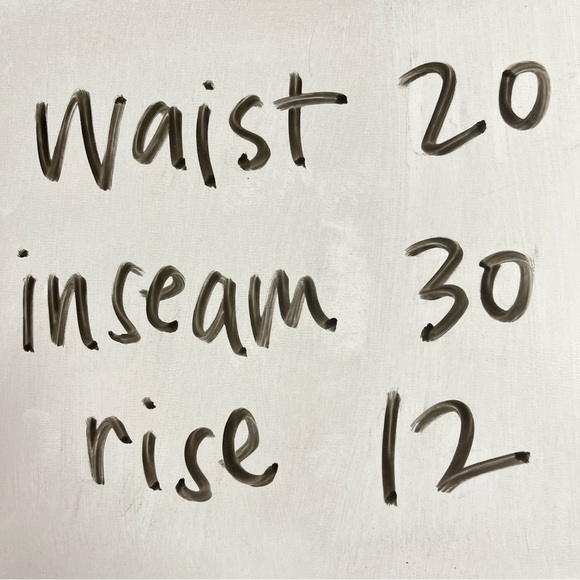 waist 20
inseam 30
rise 12